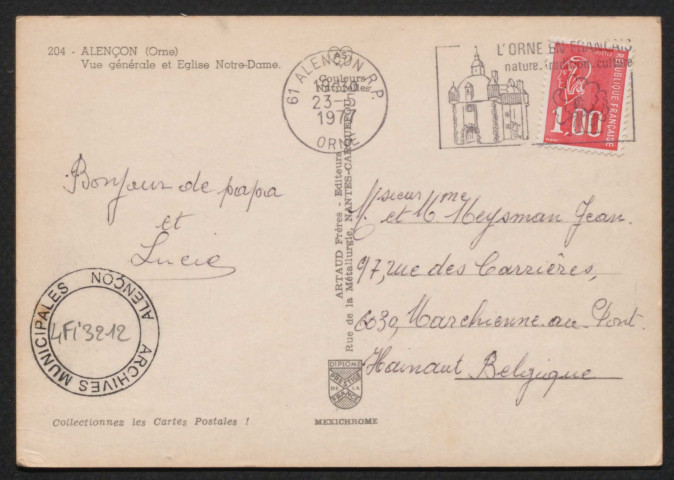 204 - ALENÇON (Orne)
Vue générale et Eglise Notre-Dame.
Couleurs
Naturelles
61 ALENÇON R.P.
23-
1977
ORNE
L'ORNE EN FRANÇAIS
nature, tradition, culture
REPUBLIQUE FRANÇAISE
1,00
Bonjour de papa
et
Lucie
Msieur et Mme Meysman Jean.
97, rue des Carrières,
6030, Marchienne au Pont.
Hainaut Belgique
ARTAUD Frères - Editeurs
Rue de la Métallurgie, NANTES-CARQUEFOU
ARCHIVES MUNICIPALES
ALENÇON
4Fi3212
DIPLOME
PRESTIGE
DE LA
FRANCE
Collectionnez les Cartes Postales !
MEXICHROME